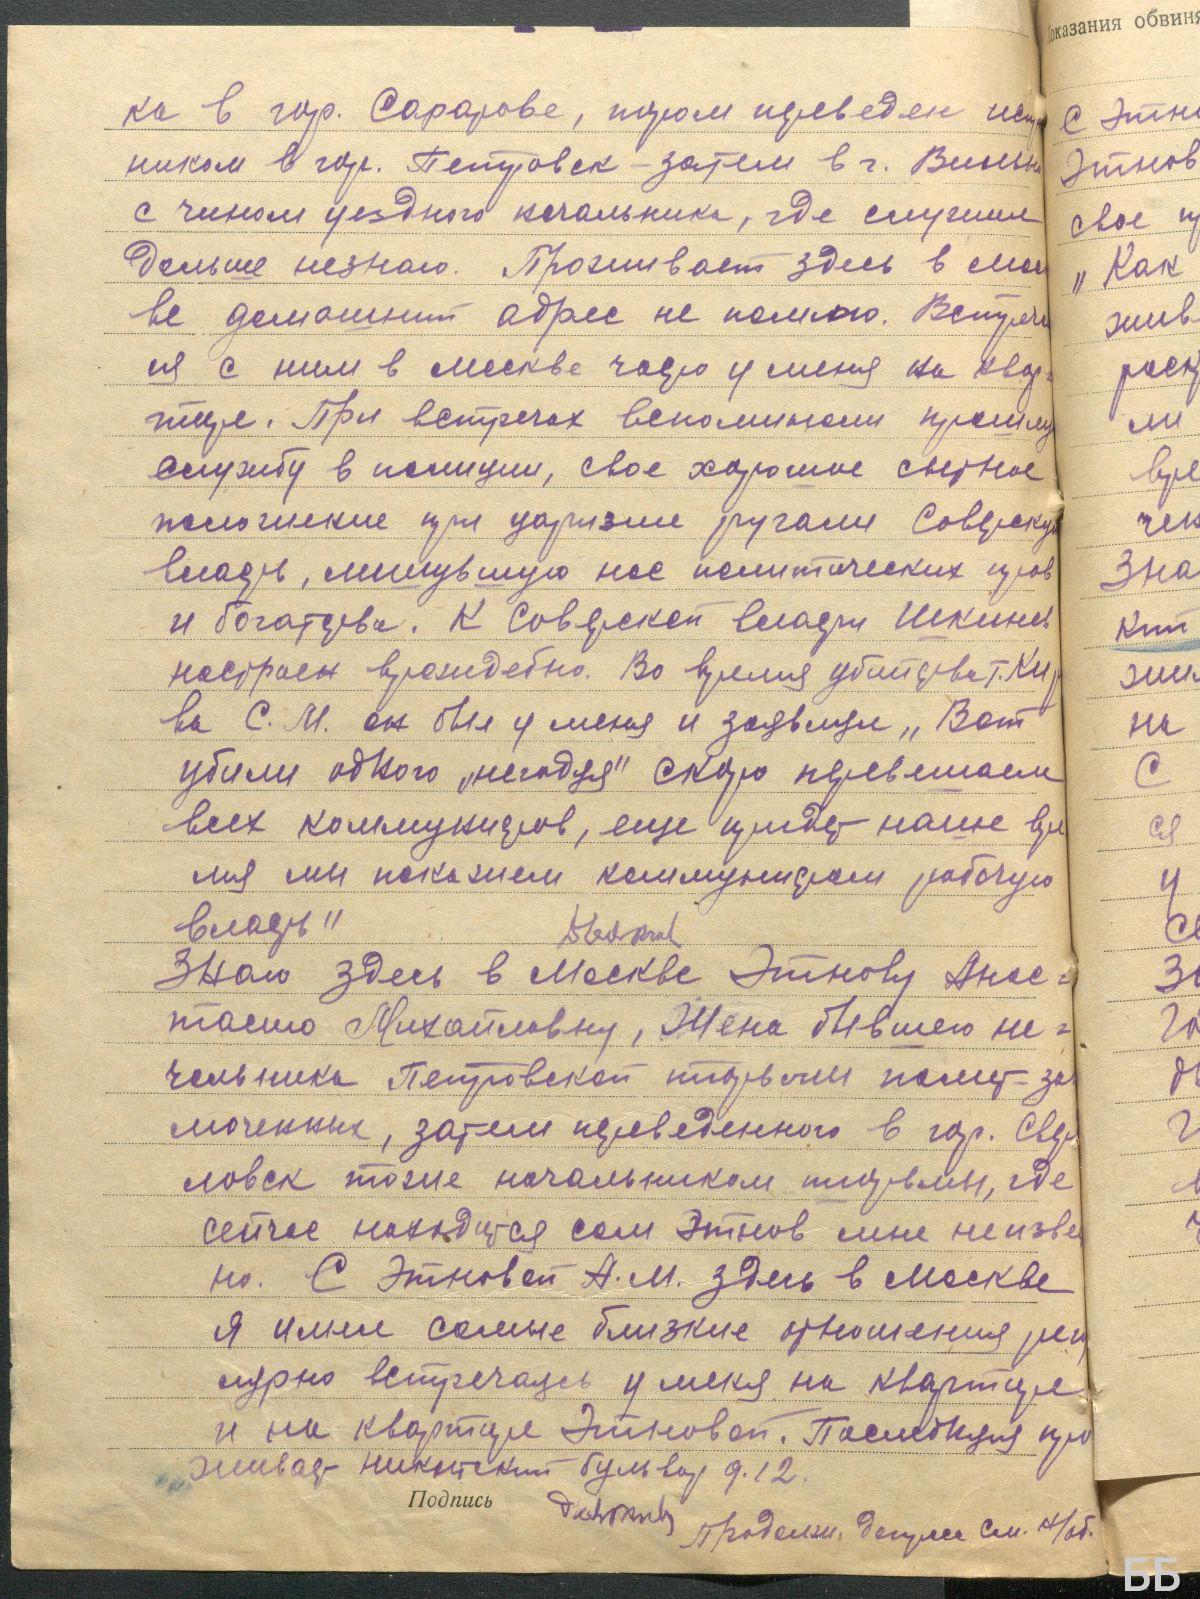 ка в гор. Саратове, потом переведен исп
ником в гор. Петровск - затем в г. Вильн
с чином уездного начальника, где служил
дальше незнаю. Проживает здесь в Мос
ве домашний адрес не помню. Встреча
ся с ним в Москве часто у меня на квар-
тире. При встречах вспоминали прошлую
службу в полиции, свое хорошое сытное
положение при царизме ругали Советскую
власть, лишувшую нас политических прав
и богатства. К Советской власти Шекинев
настроен враждебно. Во время убийства т. Киро
ва С. М. он был у меня и заявлял „Вот
убили одного „негодяя" скоро перевешаем
всех коммунистов, еще придет наше вре
мя мы покажем коммунистам рабочую
власть"
Знаю здесь в Москве Этнову Анас-
тасию Михайловну, Жена бывшего на-
чальника Петровской тюрьмы полит-за
люченных, затем переведенного в гор. Сверд
ловск тоже начальником тюрьмы, где
сейчас находится сам Этнов мне неизвес
но. С Этновой А.М. здесь в Москве
я имел самые близкие отношения регу
лярно встречаясь у меня на квартире
и на квартире Этновой. Последняя про
живает Никитский бульвар д. 12.
Подпись
Продолж. допроса см. н/об.
ББ
Показания обвиня
С Этно
Этнов
свое п
„Как
жив
раск
ми
вре
чен
Зна
кий
жил
на
С
ся
у